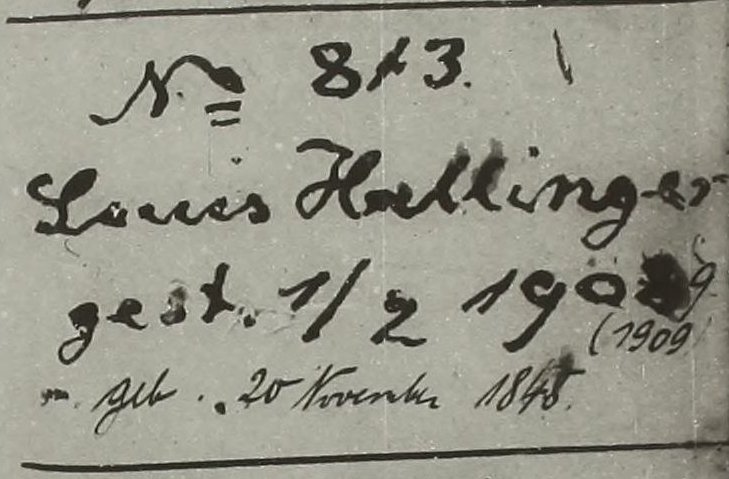 No 813.
Louis Hallinger
gest. 1/2 1909
(1909
geb. 20 November 1845.